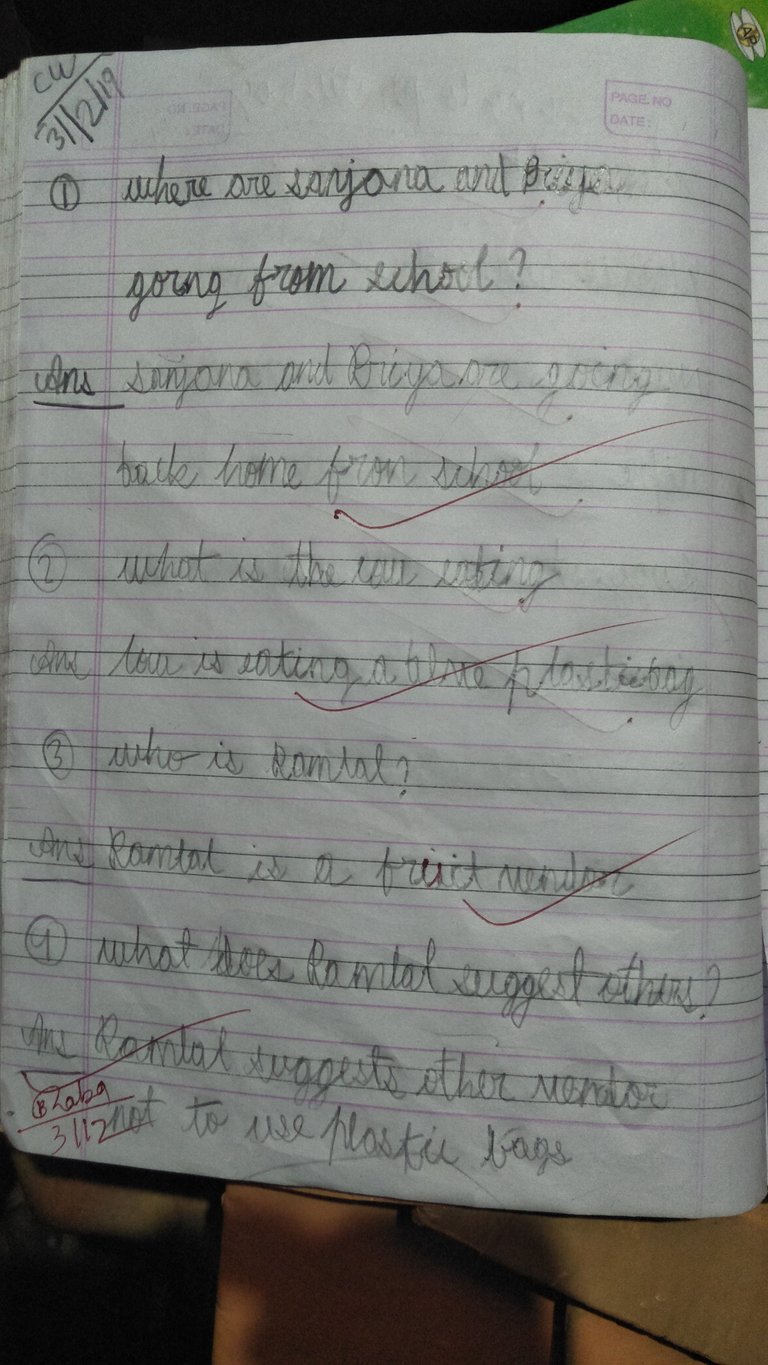 CW
31/2/19
PAGE NO
DATE:
① where are sanjana and Briya
going from school?
Ans sanjana and Briya are going
back home fron school
② what is the cow eating
Ans Cow is eating a blue plastic bag
③ who is Ramlal?
Ans Ramlal is a fruit vendor
④ what does Ramlal suggest others?
Ans Ramlal suggests other vendor
not to use plastic bags
3/12